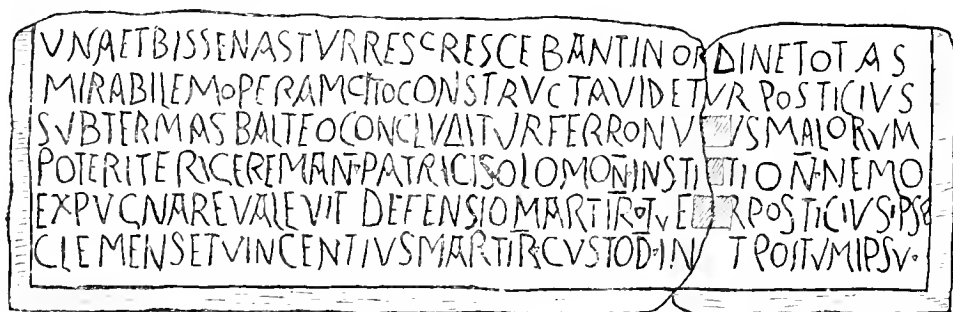 VNAETBISSENASTVRRESCRESCEBANTINORDINETOTAS
MIRABILEMOPERAMCITOCONSTRVCTAVIDETVRPOSTICIVS
SVBTERMASBALTEOCONCLVDITVRFERRONV VSMALORVM
POTERITERICEREMAN·PATRICISOLOMON̄·INSTI TION̄·NEMO
EXPVGNAREVALEVIT DEFENSIOMARTIR̄·TVE RPOSTICIVSIPSE
CLEMENSETVINCENTIVSMARTIR̄·CVSTOD̄·IN TPOITVMIPSV·